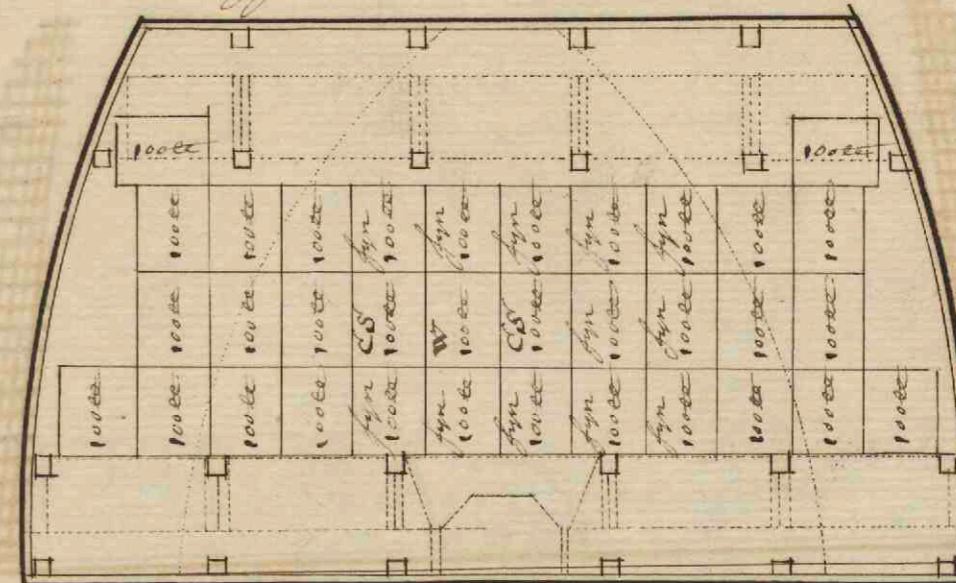 100 ℔
100 ℔
100 ℔
100 ℔
100 ℔
fyn
100 ℔
fyn
100 ℔
fyn
100 ℔
fyn
100 ℔
fyn
100 ℔
100 ℔
100 ℔
100 ℔
100 ℔
100 ℔
CS
100 ℔
W
100 ℔
CS
100 ℔
fyn
100 ℔
fyn
100 ℔
100 ℔
100 ℔
100 ℔
100 ℔
100 ℔
100 ℔
fyn
100 ℔
fyn
100 ℔
fyn
100 ℔
fyn
100 ℔
fyn
100 ℔
100 ℔
100 ℔
100 ℔